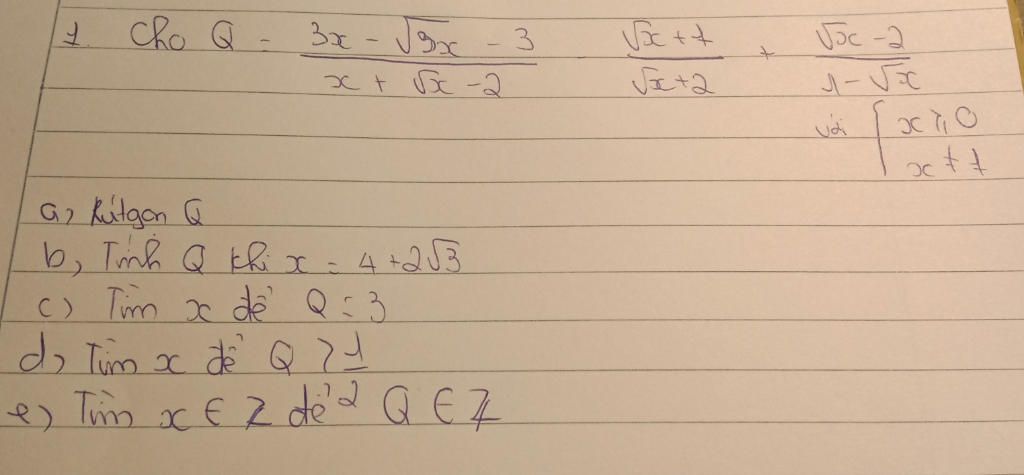 1. Cho Q = (3x - √9x - 3)/(x + √x - 2) - (√x + 1)/(√x + 2) + (√x - 2)/(1 - √x)
với { x ≥ 0
x ≠ 1
a, Rút gọn Q
b, Tính Q khi x = 4 + 2√3
c) Tìm x để Q = 3
d, Tìm x để Q > 1/2
e) Tìm x ∈ Z để Q ∈ Z